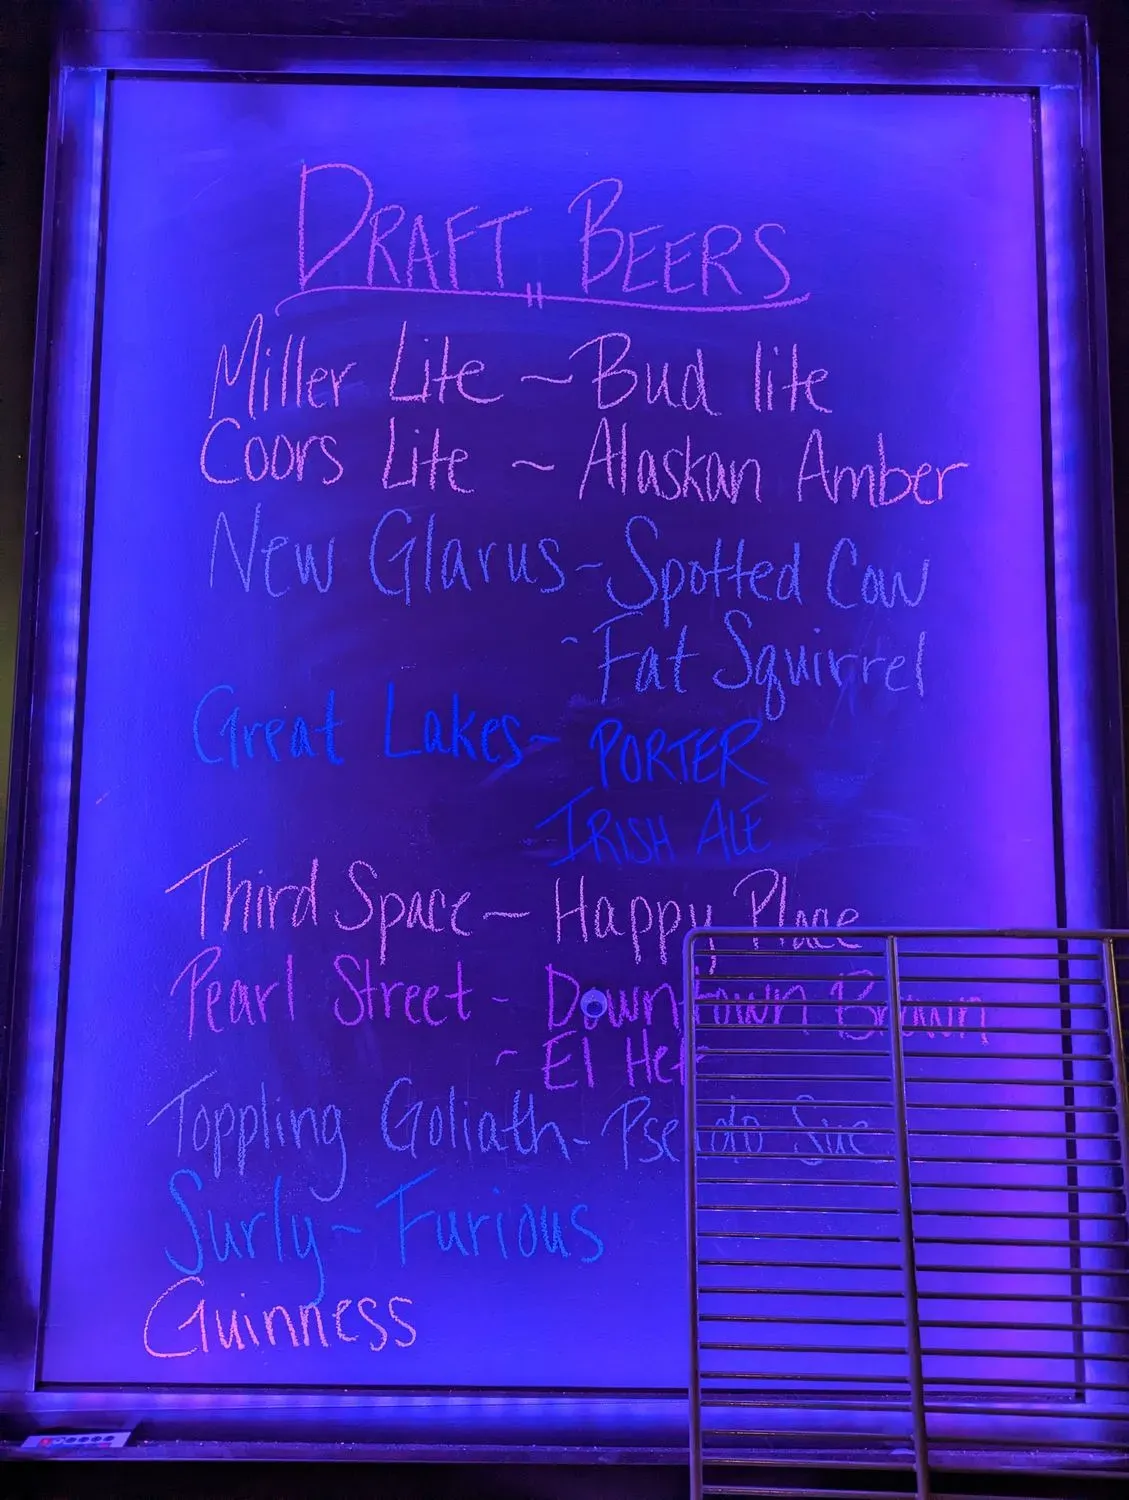 DRAFT BEERS
Miller Lite ~ Bud lite
Coors Lite ~ Alaskan Amber
New Glarus - Spotted Cow
- Fat Squirrel
Great Lakes - PORTER
IRISH ALE
Third Space - Happy Place
Pearl Street - Downtown Brown
- El Hefe
Toppling Goliath - Pseudo Sue
Surly - Furious
Guinness